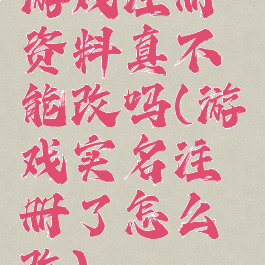 游戏注册
资料真不
能改吗(游
戏实名注
册了怎么
改)